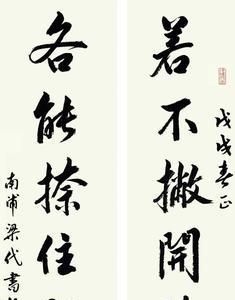 若不撇開
戊戌春正
各能捺住
南浦梁代書